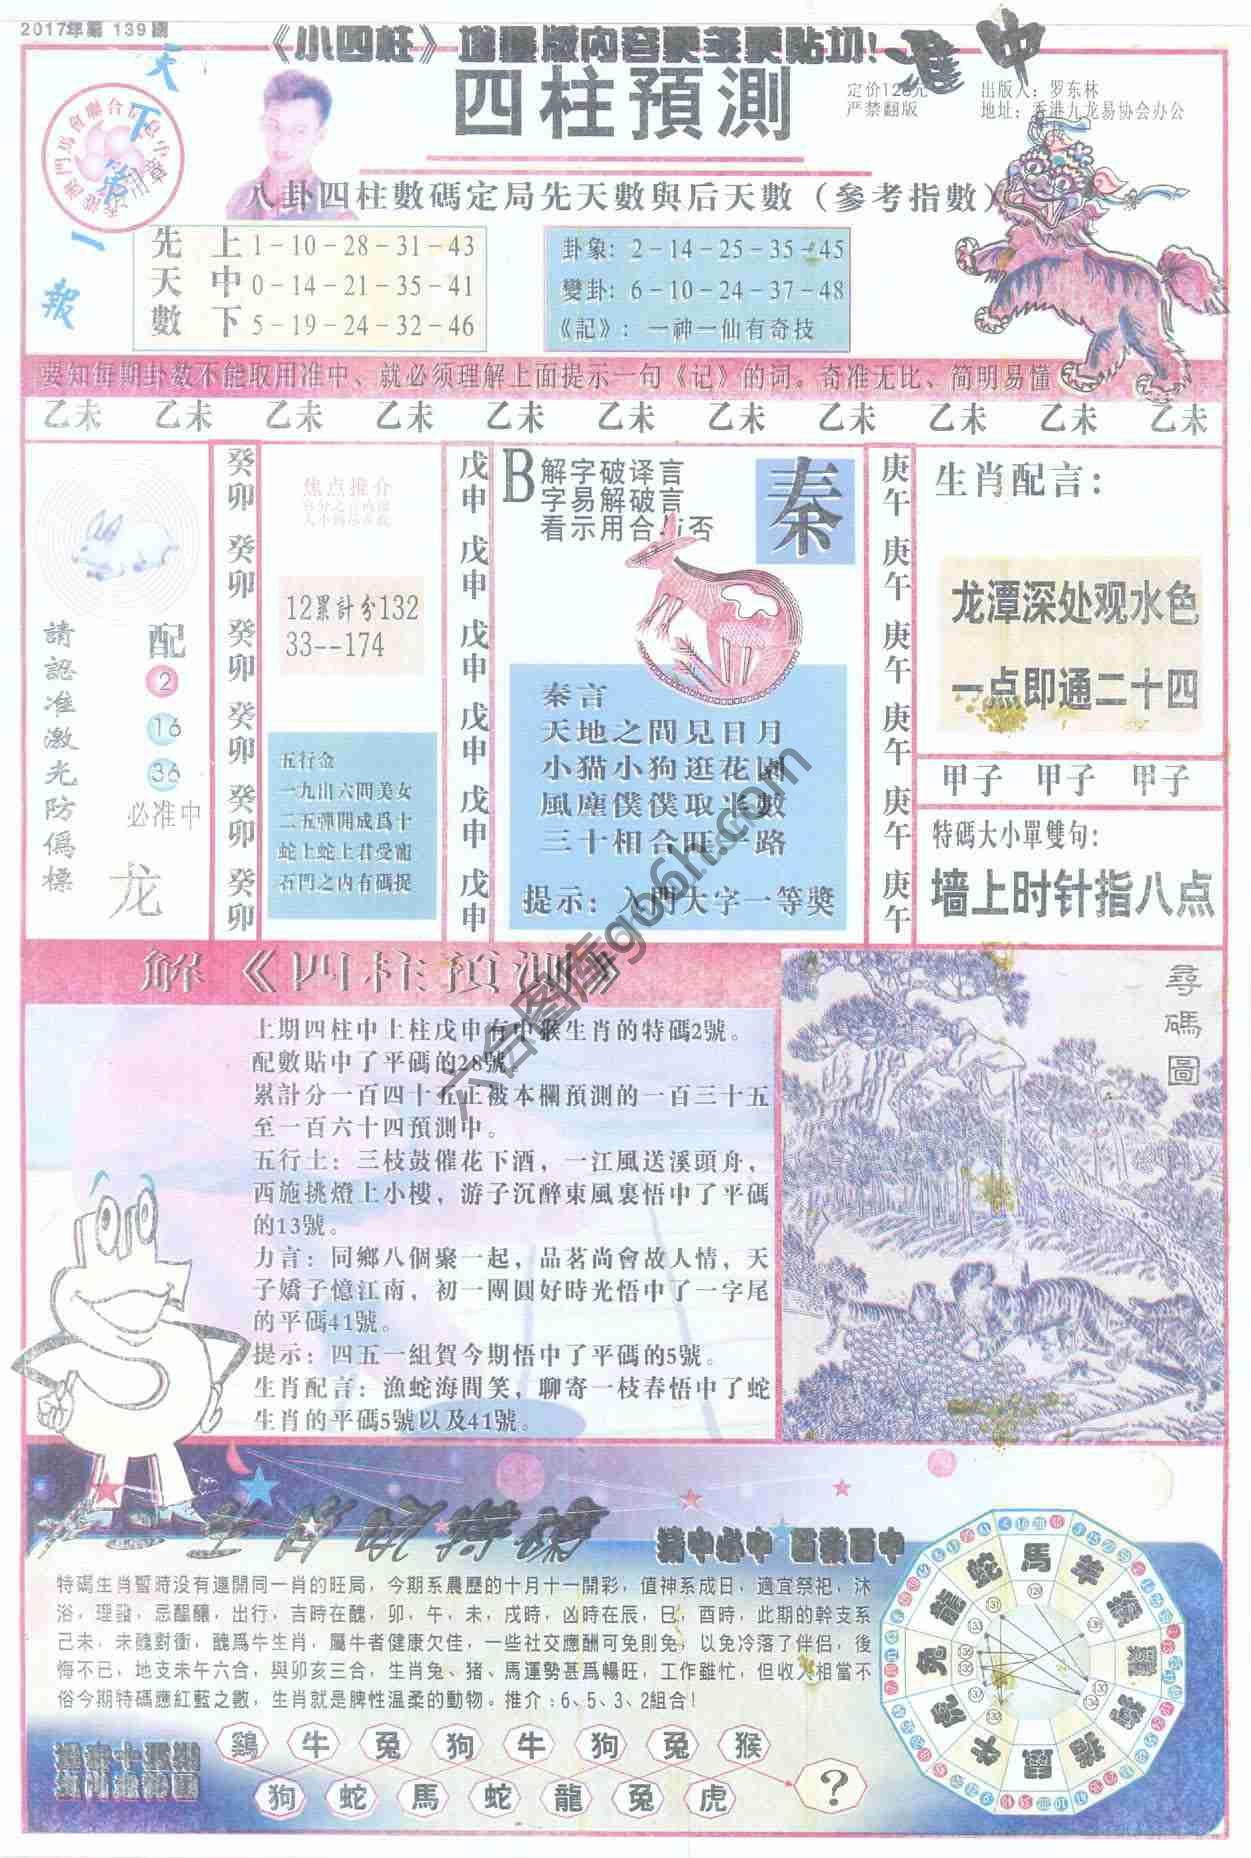 2017年第 139 期
《小四柱》
准中
四柱預測
定价128元
严禁翻版
出版人：罗东林
地址：香港九龙易协会办公
天下第一報
八卦四柱數碼定局先天數與后天數（參考指數）
先天數
上 1－10－28－31－43
中 0－14－21－35－41
下 5－19－24－32－46
卦象: 2－14－25－35－45
變卦: 6－10－24－37－48
《記》: 一神一仙有奇技
要知每期卦数不能取用准中、就必须理解上面提示一句《记》的词。奇准无比、简明易懂
乙未 乙未 乙未 乙未 乙未 乙未 乙未 乙未 乙未 乙未 乙未
請認准激光防僞標
配
2
16
36
必准中
龙
癸卯 癸卯 癸卯 癸卯 癸卯 癸卯
焦点推介
12累計分132
33--174
五行金
一九出六間美女
二五彈開成爲十
蛇上蛇上君受寵
石門之内有碼捉
戊申 戊申 戊申 戊申 戊申 戊申
B
解字破译言
字易解破言
看示用合与否
秦
秦言
天地之間見日月
小猫小狗逛花園
風塵僕僕取半數
三十相合旺一路
提示: 入門大字一等獎
庚午 庚午 庚午 庚午 庚午 庚午
生肖配言:
龙潭深处观水色
一点即通二十四
甲子 甲子 甲子
特碼大小單雙句:
墙上时针指八点
解《四柱預測》
上期四柱中上柱戊申有中猴生肖的特碼2號。
配數貼中了平碼的28號
累計分一百四十五正被本欄預測的一百三十五
至一百六十四預測中。
五行土: 三枝鼓催花下酒，一江風送溪頭舟，
西施挑燈上小樓，游子沉醉東風裏悟中了平碼
的13號。
力言: 同鄉八個聚一起，品茗尚會故人情，天
子嬌子憶江南，初一團圓好時光悟中了一字尾
的平碼41號。
提示: 四五一組賀今期悟中了平碼的5號。
生肖配言: 漁蛇海間笑，聊寄一枝春悟中了蛇
生肖的平碼5號以及41號。
尋碼圖
特碼生肖暫時没有連開同一肖的旺局，今期系農歷的十月十一開彩，值神系成日，適宜祭祀，沐
浴，理發，忌醖釀，出行，吉時在醜，卯，午，未，戌時，凶時在辰，巳，酉時，此期的幹支系
己未，未醜對衝，醜爲牛生肖，屬牛者健康欠佳，一些社交應酬可免則免，以免冷落了伴侣，後
悔不已，地支未午六合，與卯亥三合，生肖兔、猪、馬運勢甚爲暢旺，工作雖忙，但收入相當不
俗今期特碼應紅藍之數，生肖就是脾性温柔的動物。推介:6、5、3、2組合！
鷄 牛 兔 狗 牛 狗 兔 猴
狗 蛇 馬 蛇 龍 兔 虎
?
馬 羊
牛 虎 兔 龍 蛇
六合图库go6h.com